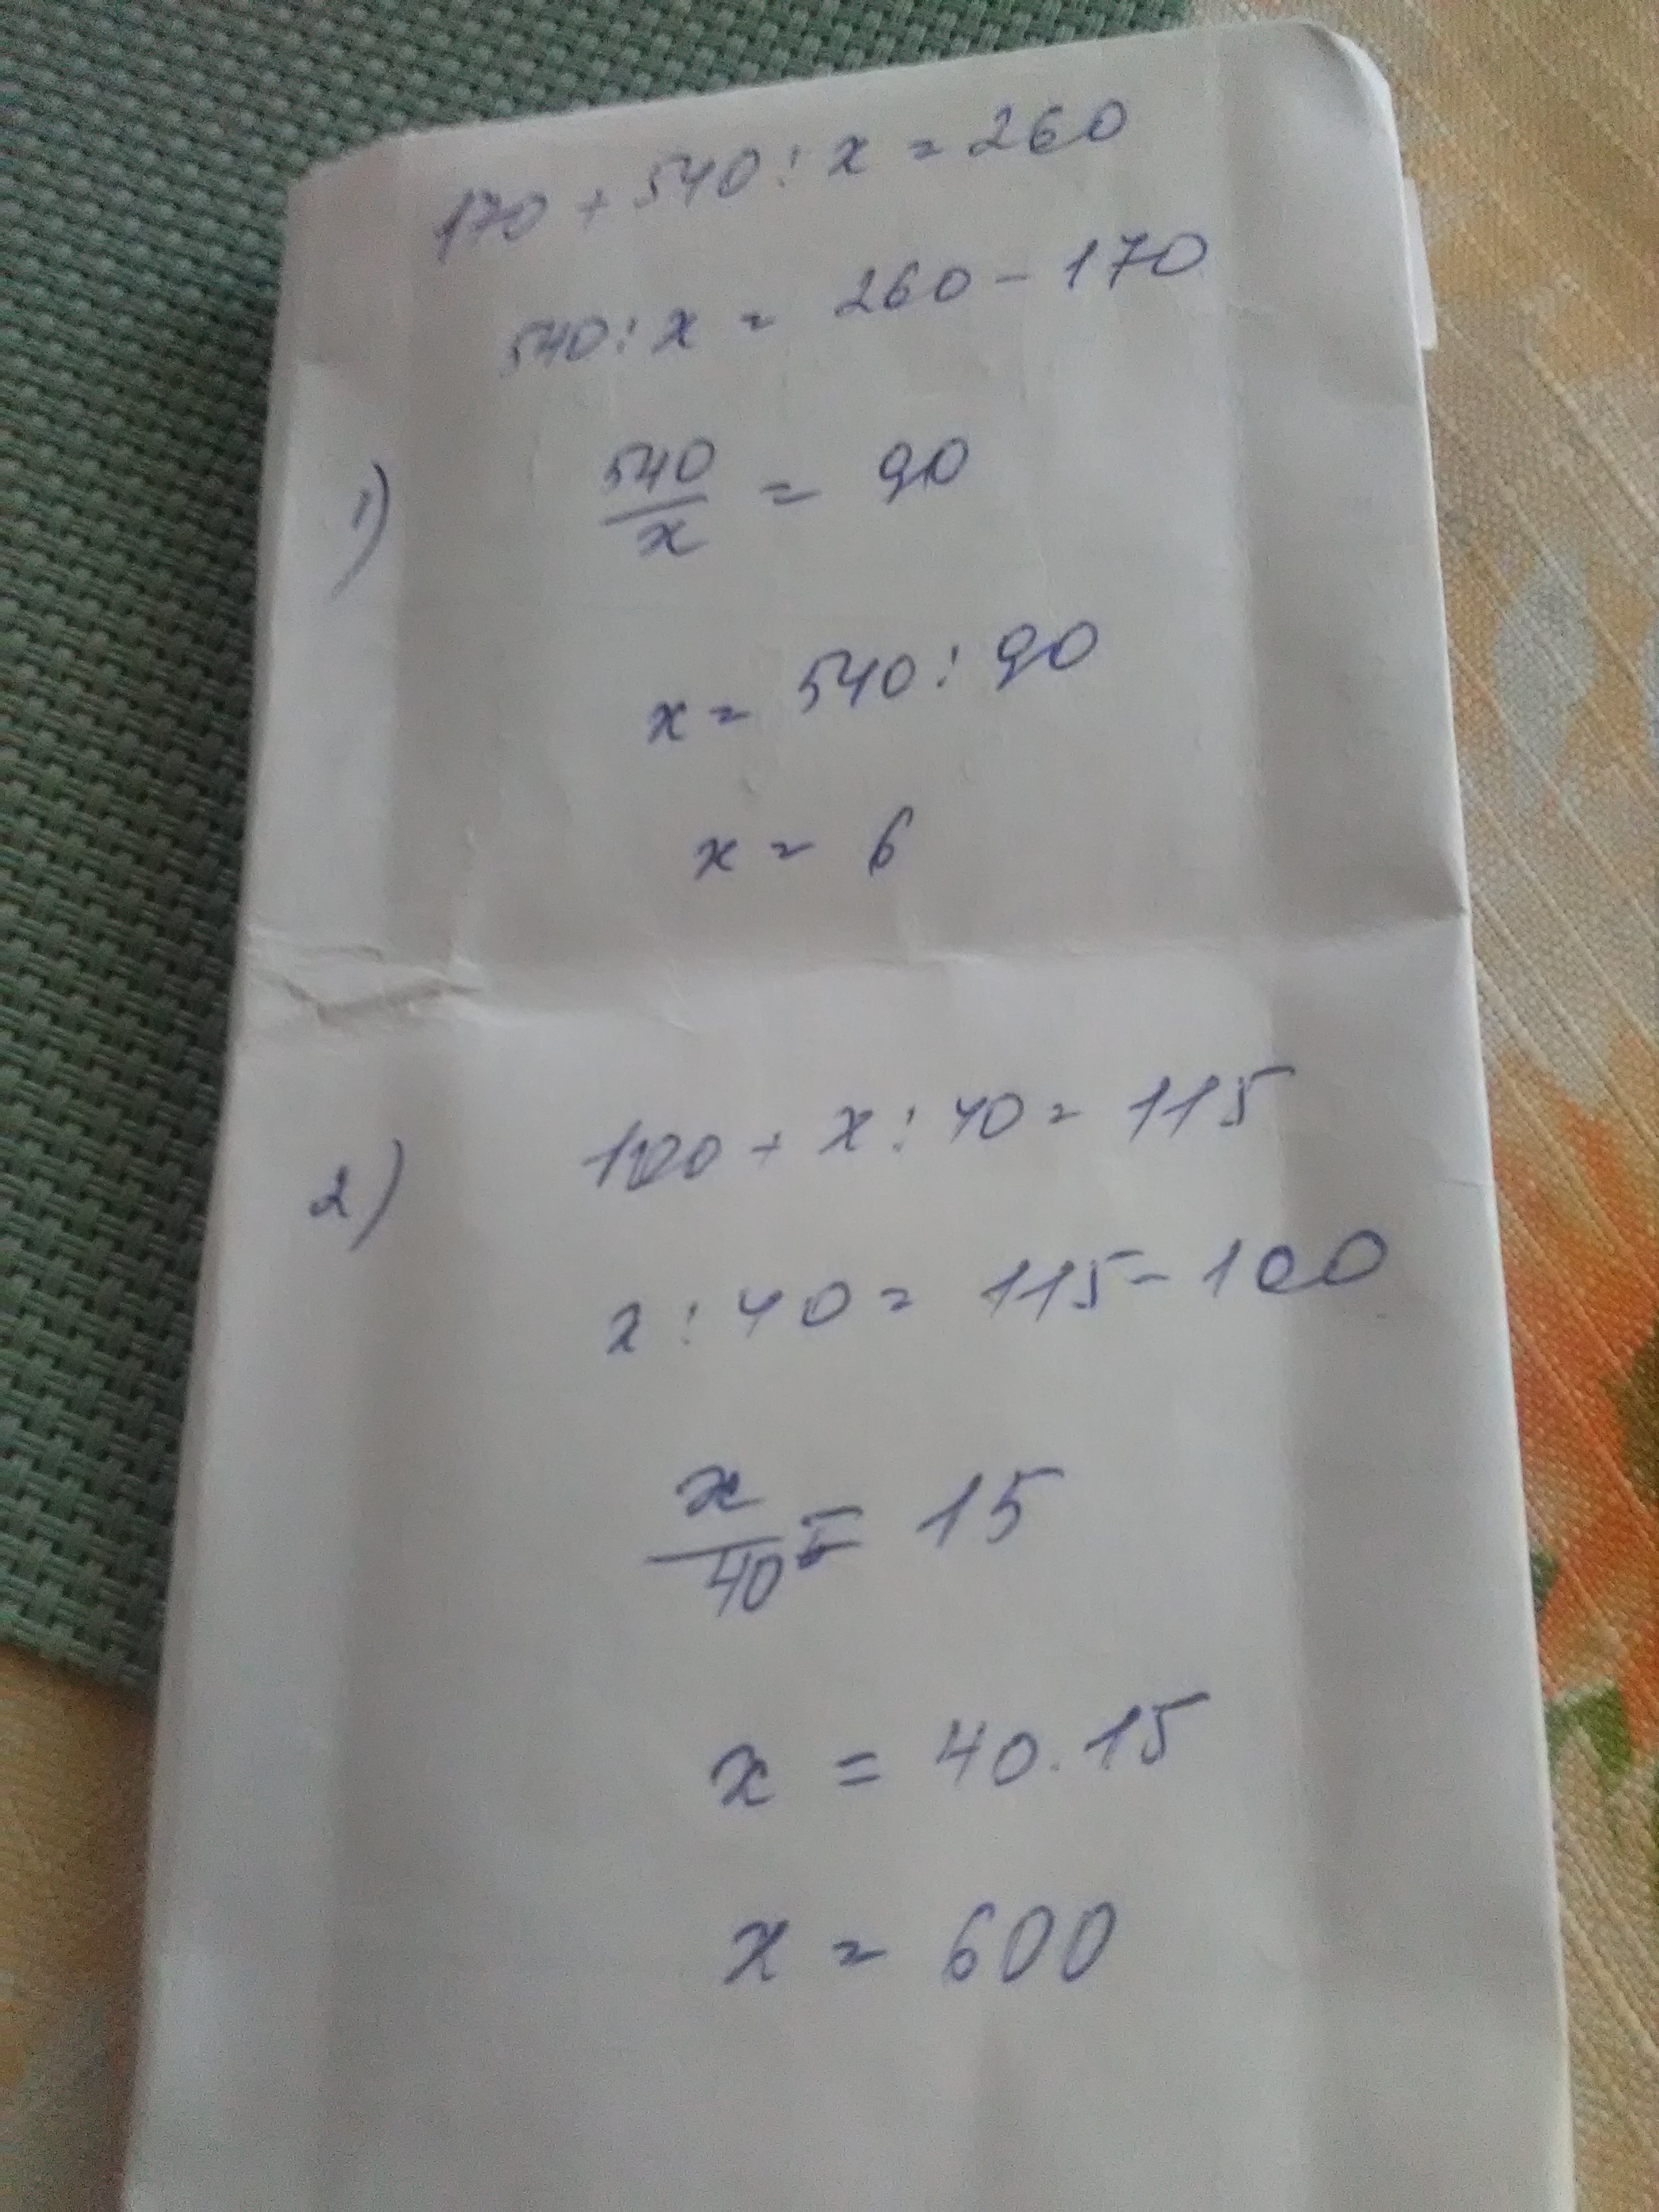 170 + 540 : x = 260
540 : x = 260 - 170
1) 540/x = 90
x = 540 : 90
x = 6
2) 100 + x : 40 = 115
x : 40 = 115 - 100
x/40 = 15
x = 40 . 15
x = 600